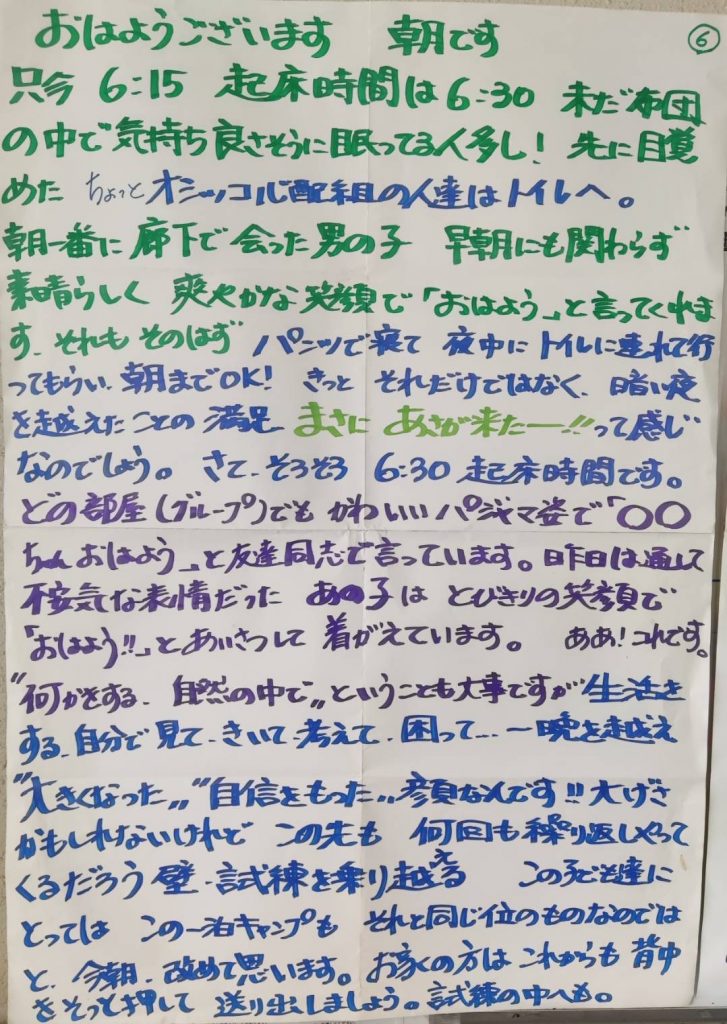 おはようございます 朝です ⑥
只今 6:15 起床時間は6:30 未だ布団
の中で気持ち良さそうに眠ってる人多し! 先に目覚
めた ちょっとオシッコ心配組の人達はトイレへ。
朝一番に廊下で会った男の子 早朝にも関わらず
素晴らしく 爽やかな笑顔で「おはよう」と言ってくれま
す、それもそのはず パンツで寝て 夜中にトイレに連れて行
ってもらい、朝までOK! きっと それだけではなく、暗い夜
を越えたことの満足 まさに あさが来たー!!って感じ
なのでしょう。 さて、そろそろ 6:30 起床時間です。
どの部屋(グループ)でも かわいいパジャマ姿で「〇〇
ちゃんおはよう」と友達同志で言っています。昨日は通して
不安気な表情だった あの子は とびきりの笑顔で
「おはよう!!」とあいさつして 着がえています。 ああ!コレです。
〝何かをする、自然の中で〟ということも大事ですが 生活を
する、自分で見て、きいて 考えて、困って…一晩を越え
〝大きくなった〟〝自信をもった〟顔なんです!! 大げさ
かもしれないけれど この先も 何回も繰り返しやって
くるだろう 壁、試練を乗り越える この子ども達に
とっては この一泊キャンプも それと同じ位のものなのでは
と、今朝、改めて思います。お家の方は これからも 背中
をそっと押して 送り出しましょう。試練の中へも。